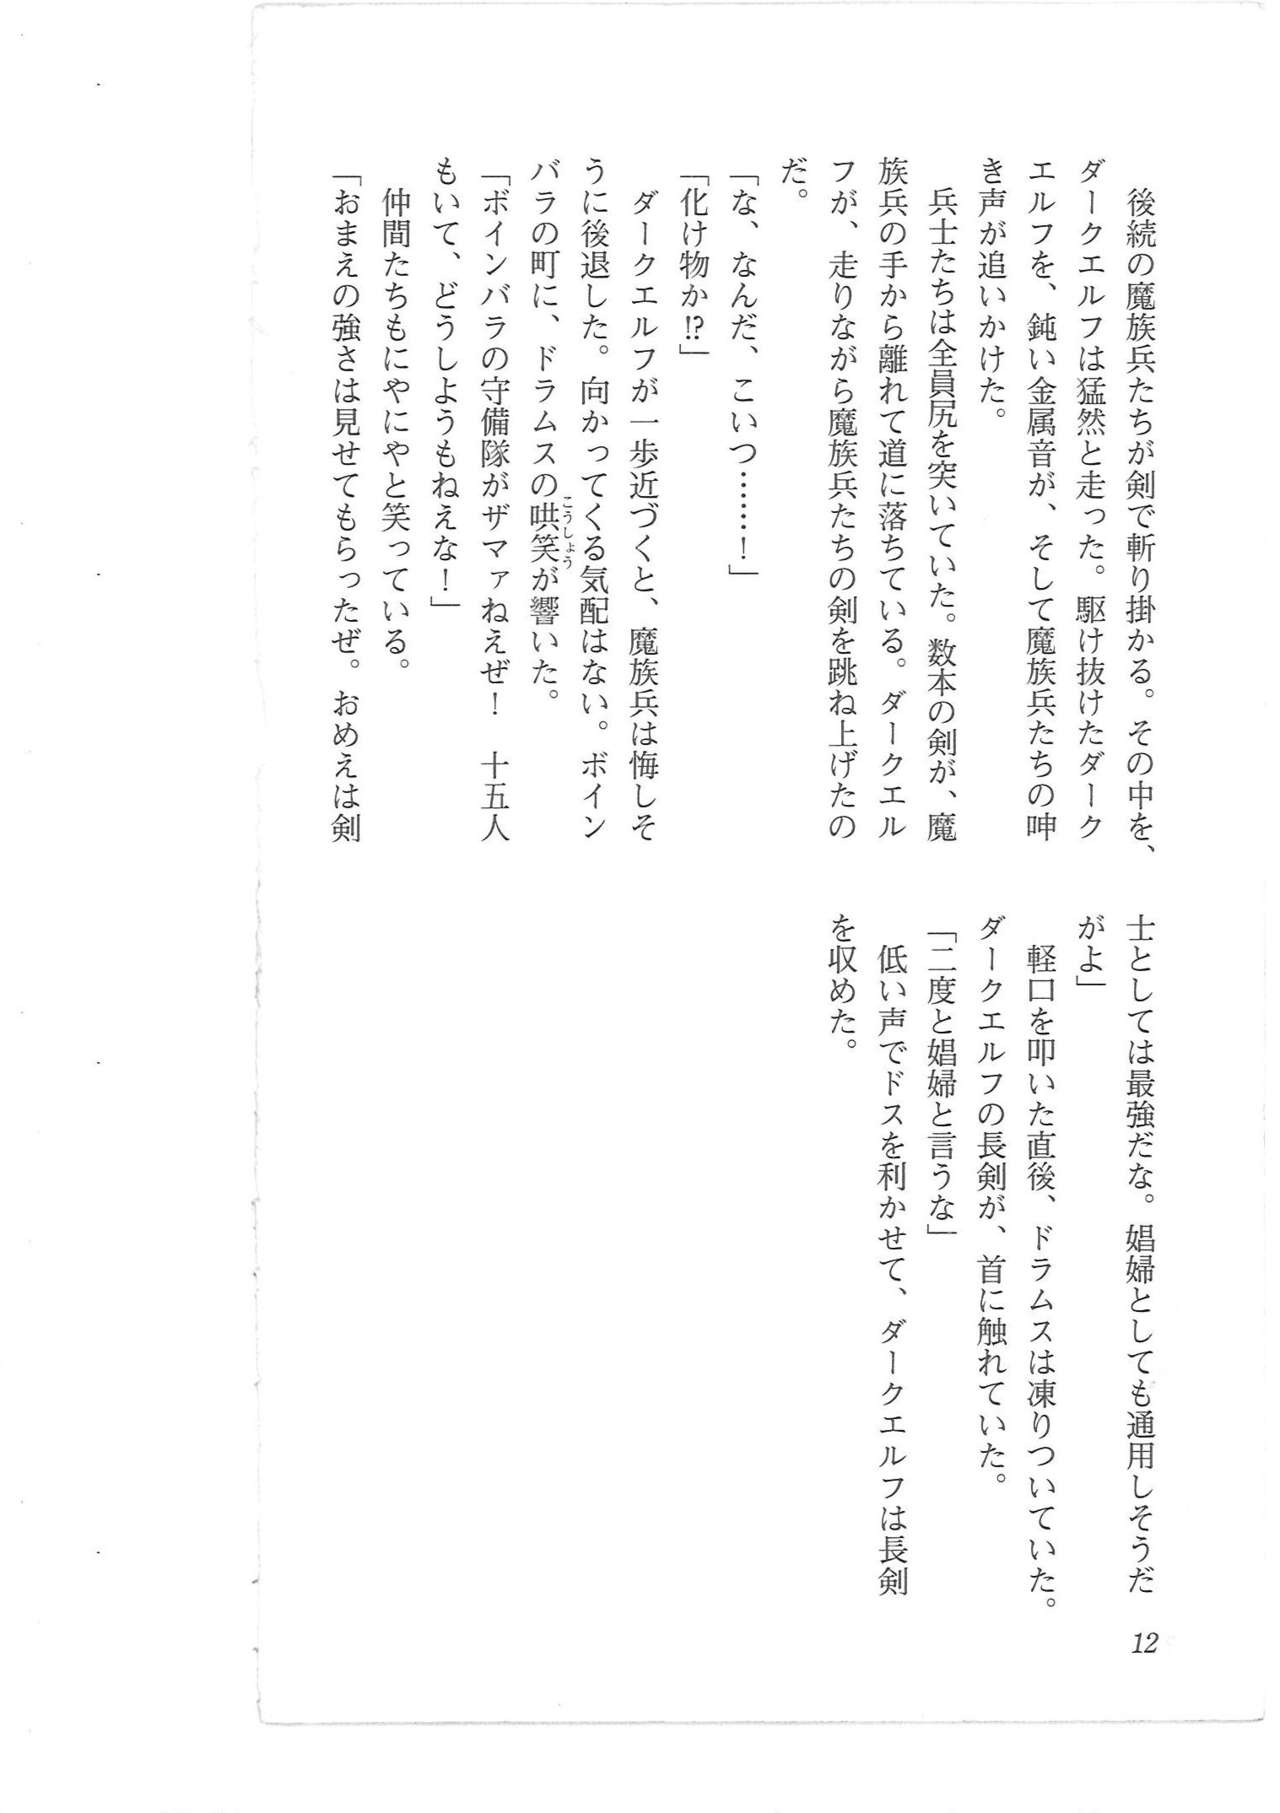 後続の魔族兵たちが剣で斬り掛かる。その中を、
ダークエルフは猛然と走った。駆け抜けたダーク
エルフを、鈍い金属音が、そして魔族兵たちの呻
き声が追いかけた。
　兵士たちは全員尻を突いていた。数本の剣が、魔
族兵の手から離れて道に落ちている。ダークエル
フが、走りながら魔族兵たちの剣を跳ね上げたの
だ。
「な、なんだ、こいつ……！」
「化け物か!?」
　ダークエルフが一歩近づくと、魔族兵は悔しそ
うに後退した。向かってくる気配はない。ボイン
バラの町に、ドラムスの哄笑が響いた。
こうしょう
「ボインバラの守備隊がザマァねえぜ！　十五人
もいて、どうしようもねえな！」
　仲間たちもにやにやと笑っている。
「おまえの強さは見せてもらったぜ。おめえは剣
士としては最強だな。娼婦としても通用しそうだ
がよ」
　軽口を叩いた直後、ドラムスは凍りついていた。
ダークエルフの長剣が、首に触れていた。
「二度と娼婦と言うな」
　低い声でドスを利かせて、ダークエルフは長剣
を収めた。
12